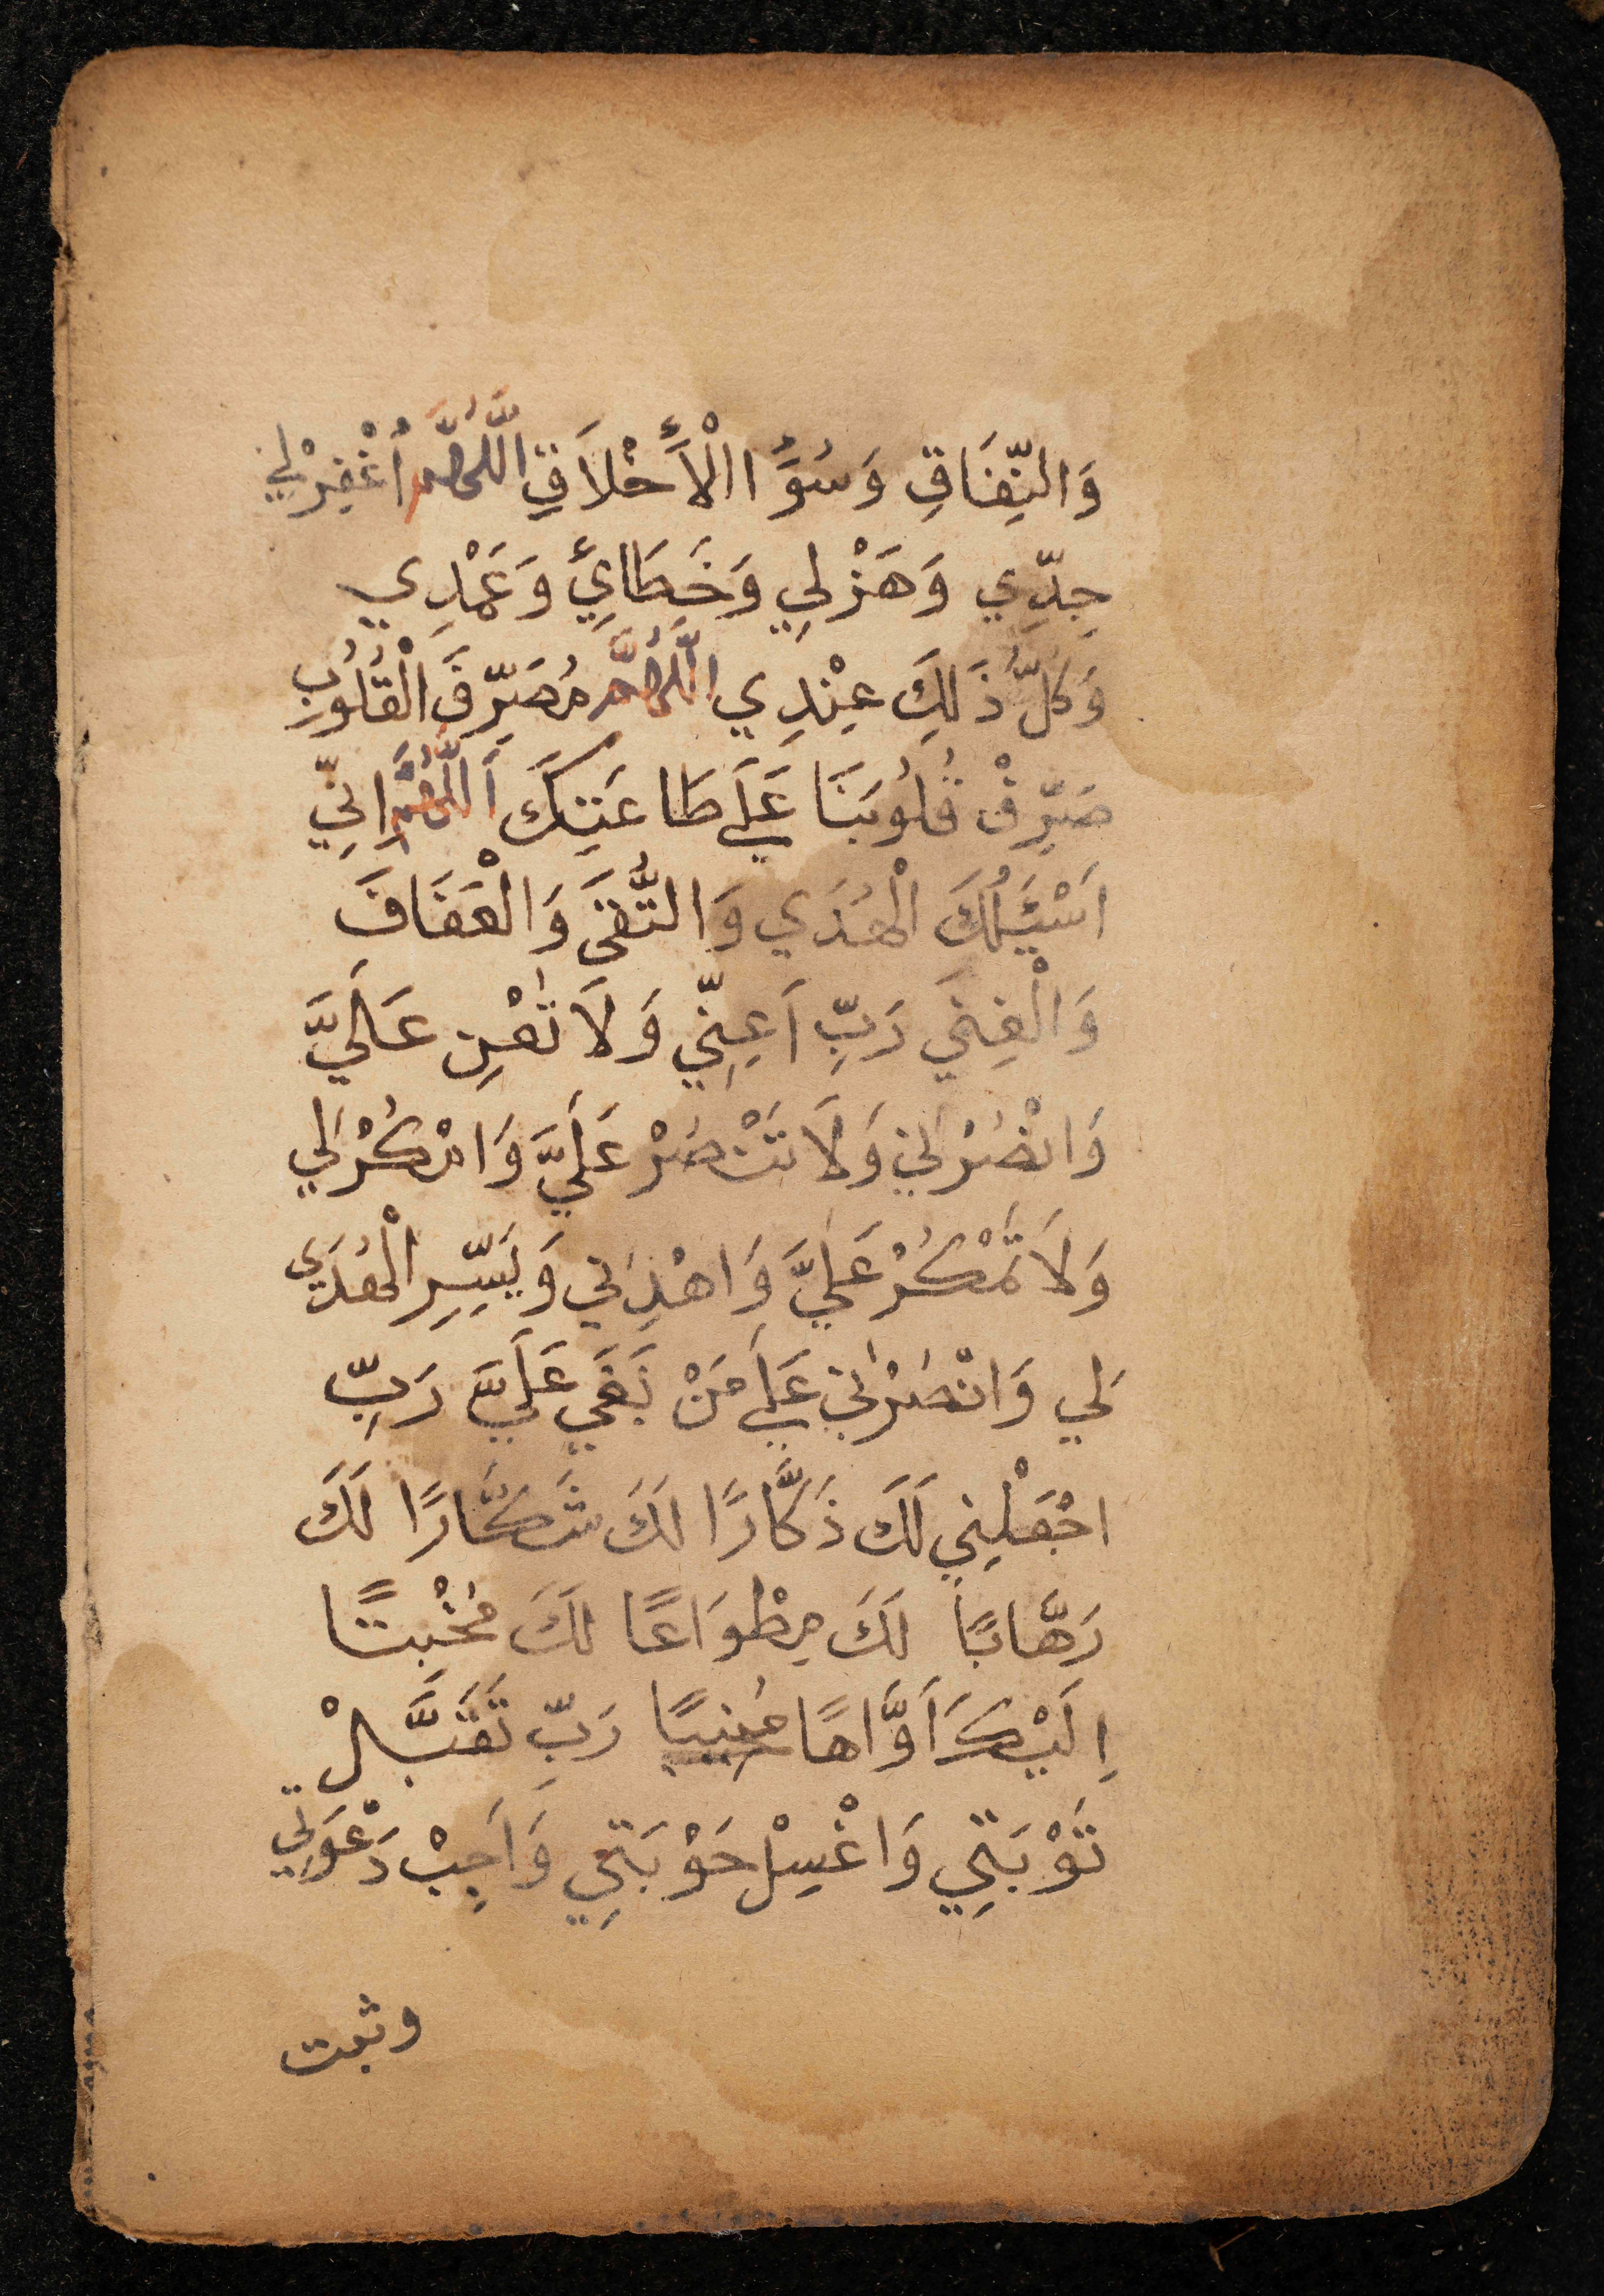 وَالنِّفَاقِ وَسُؤَُ االْأَخْلَاَقِ اللَّهُمَّ اُغْفِرْلِي
جِدِّي وَهَزْلِي وَخَطَائِي وَعَمْدِي
وَكُلُّ ذَلِكَ عِنْدِي اللَّهُمَّ مُصَرِّفَ الْقُلُوبِ
صَرِّفْ قُلُوبَنَا عَلَي طَاعَتِكَ اَللَّهُمَّ اِنِّي
اَسْئَلُكَ الْهُدَي وَالتُّقَى وَالْعَفَافَ
وَالْغِنَي رَبِّ اَعِنِّي وَلَا تُعْنِ عَلَيَّ
وَانْصُرْنِي وَلَا تَنْصُرْ عَلَيَّ وَامْكُرْلِي
وَلَا تَمْكُرْ عَلَيَّ وَاهْدِنِي وَيَسِّرِ الْهُدَي
لِي وَانْصُرْنِي عَلَي مَنْ بَغَي عَلَيَّ رَبِّ
اجْعَلْنِي لَكَ ذَكَّارًا لَكَ شَكَّارًا لَكَ
رَهَّابًا لَكَ مِطْوَاعًا لَكَ مُخْبِتًا
اِلَيْكَ اَوَّاهًا مُنِيبًا رَبِّ تَقَبَّلْ
تَوْبَتِي وَاغْسِلْ حَوْبَتِي وَاَجِبْ دَعْوَتِي
وثبت